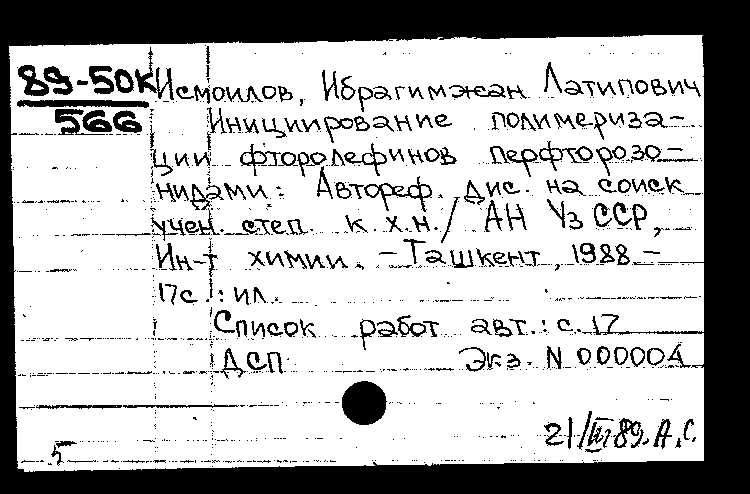 89-50к Исмоилов, Ибрагимжан Латипович
566 Инициирование полимериза-
ции фторолефинов перфторозо-
нидами: Автореф. дис. на соиск
учен. степ. к.х.н./ АН УзССР,
Ин-т химии. – Ташкент, 1988. –
17с.: ил.
Список работ авт.: с. 17
ДСП Экз. N 000004
21/III 89. А.С.
5